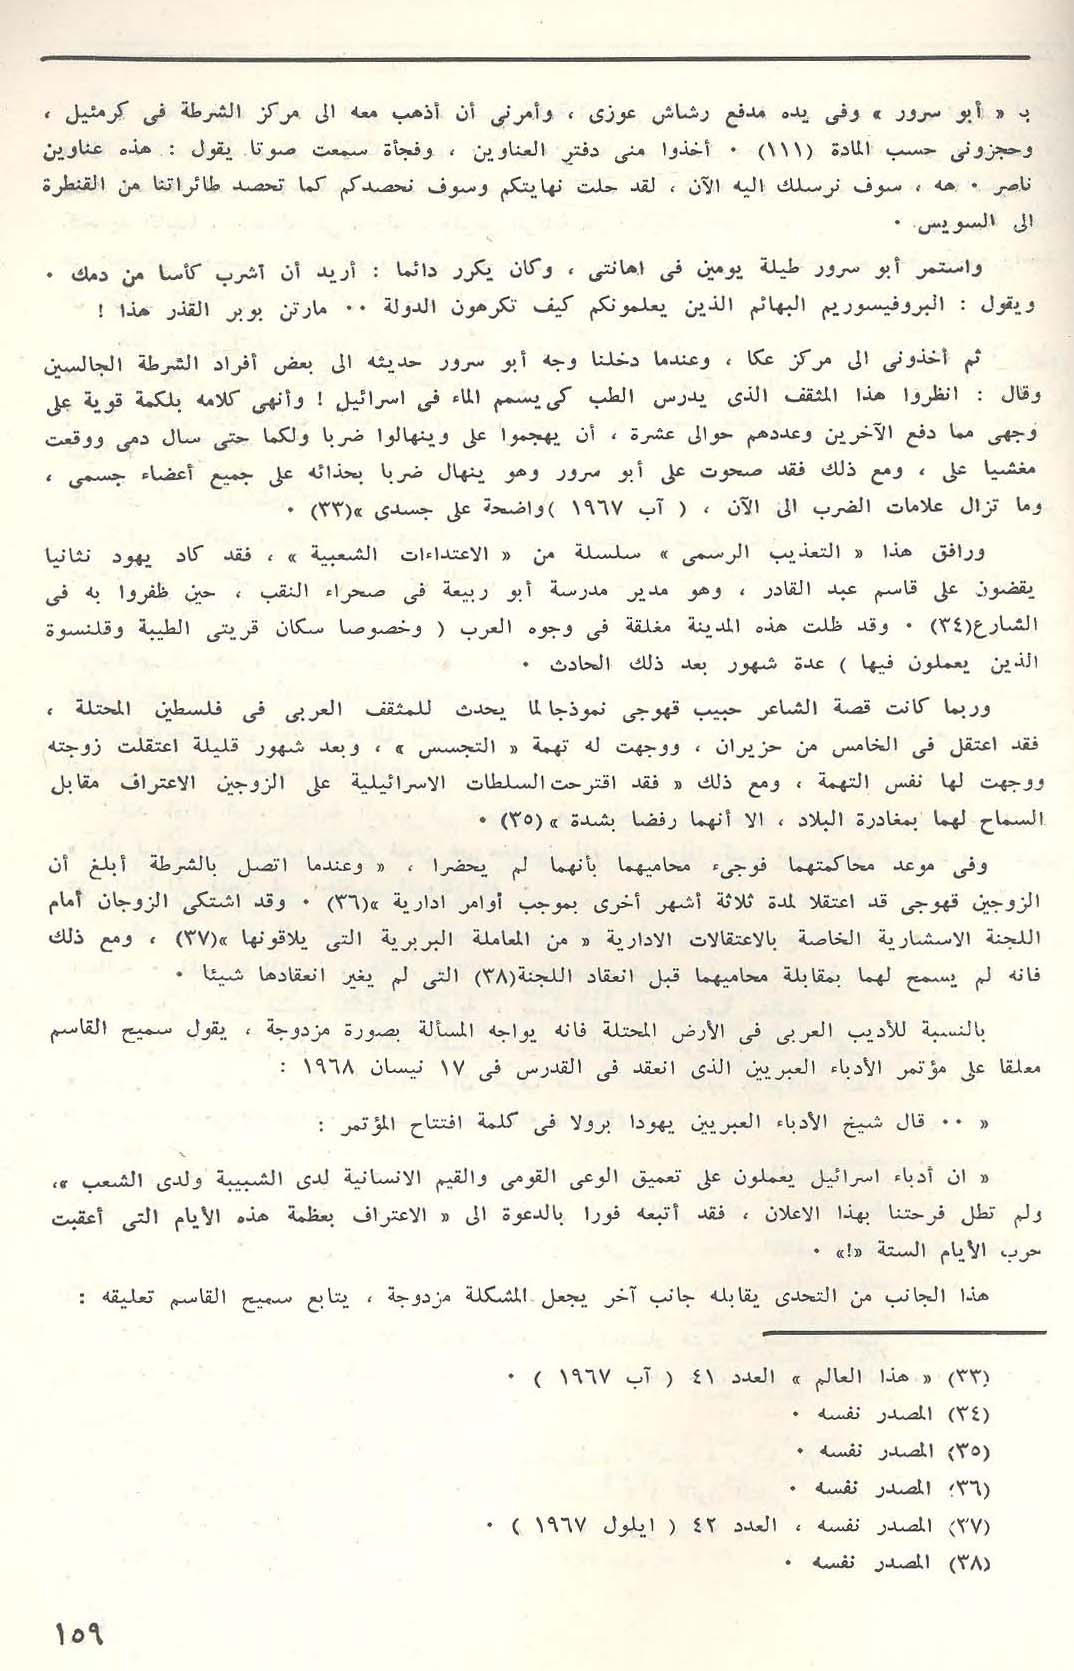 بـ « أبو سرور » وفى يده مدفع رشاش عوزى ، وأمرنى أن أذهب معه الى مركز الشرطة فى كرمئيل ،
وحجزونى حسب المادة (١١١) ٠ أخذوا منى دفتر العناوين ، وفجأة سمعت صوتا يقول : هذه عناوين
ناصر ٠ هه ، سوف نرسلك اليه الآن ، لقد حلت نهايتكم وسوف نحصدكم كما تحصد طائراتنا من القنطرة
الى السويس ٠
واستمر أبو سرور طيلة يومين فى اهانتى ، وكان يكرر دائما : أريد أن أشرب كأسا من دمك ٠
ويقول : البروفيسوريم البهائم الذين يعلمونكم كيف تكرهون الدولة ٠٠ مارتن بوبر القذر هذا !
ثم أخذونى الى مركز عكا ، وعندما دخلنا وجه أبو سرور حديثه الى بعض أفراد الشرطة الجالسين
وقال : انظروا هذا المثقف الذى يدرس الطب كى يسمم الماء فى اسرائيل ! وأنهى كلامه بلكمة قوية على
وجهى مما دفع الآخرين وعددهم حوالى عشرة ، أن يهجموا على وينهالوا ضربا ولكما حتى سال دمى ووقعت
مغشيا على ، ومع ذلك فقد صحوت على أبو سرور وهو ينهال ضربا بحذائه على جميع أعضاء جسمى ،
وما تزال علامات الضرب الى الآن ، ( آب ١٩٦٧ )واضحة على جسدى »(٣٣) ٠
ورافق هذا « التعذيب الرسمى » سلسلة من « الاعتداءات الشعبية » ، فقد كاد يهود نثانيا
يقضون على قاسم عبد القادر ، وهو مدير مدرسة أبو ربيعة فى صحراء النقب ، حين ظفروا به فى
الشارع(٣٤) ٠ وقد ظلت هذه المدينة مغلقة فى وجوه العرب ( وخصوصا سكان قريتى الطيبة وقلنسوة
الذين يعملون فيها ) عدة شهور بعد ذلك الحادث ٠
وربما كانت قصة الشاعر حبيب قهوجى نموذجا لما يحدث للمثقف العربى فى فلسطين المحتلة ،
فقد اعتقل فى الخامس من حزيران ، ووجهت له تهمة « التجسس » ، وبعد شهور قليلة اعتقلت زوجته
ووجهت لها نفس التهمة ، ومع ذلك « فقد اقترحت السلطات الاسرائيلية على الزوجين الاعتراف مقابل
السماح لهما بمغادرة البلاد ، الا أنهما رفضا بشدة »(٣٥) ٠
وفى موعد محاكمتهما فوجىء محاميهما بأنهما لم يحضرا ، « وعندما اتصل بالشرطة أبلغ أن
الزوجين قهوجى قد اعتقلا لمدة ثلاثة أشهر أخرى بموجب أوامر ادارية »(٣٦) ٠ وقد اشتكى الزوجان أمام
اللجنة الاسشارية الخاصة بالاعتقالات الادارية « من المعاملة البربرية التى يلاقونها »(٣٧) ، ومع ذلك
فانه لم يسمح لهما بمقابلة محاميهما قبل انعقاد اللجنة(٣٨) التى لم يغير انعقادها شيئا ٠
بالنسبة للأديب العربى فى الأرض المحتلة فانه يواجه المسألة بصورة مزدوجة ، يقول سميح القاسم
معلقا على مؤتمر الأدباء العبريين الذى انعقد فى القدرس فى ١٧ نيسان ١٩٦٨ :
« ٠٠ قال شيخ الأدباء العبريين يهودا برولا فى كلمة افتتاح المؤتمر :
« ان أدباء اسرائيل يعملون على تعميق الوعى القومى والقيم الانسانية لدى الشبيبة ولدى الشعب »،
ولم تطل فرحتنا بهذا الاعلان ، فقد أتبعه فورا بالدعوة الى « الاعتراف بعظمة هذه الأيام التى أعقبت
حرب الأيام الستة «!» ٠
هذا الجانب من التحدى يقابله جانب آخر يجعل المشكلة مزدوجة ، يتابع سميح القاسم تعليقه :
(٣٣) « هذا العالم » العدد ٤١ ( آب ١٩٦٧ ) ٠
(٣٤) المصدر نفسه ٠
(٣٥) المصدر نفسه ٠
(٣٦) المصدر نفسه ٠
(٣٧) المصدر نفسه ، العدد ٤٢ ( ايلول ١٩٦٧ ) ٠
(٣٨) المصدر نفسه ٠
١٥٩